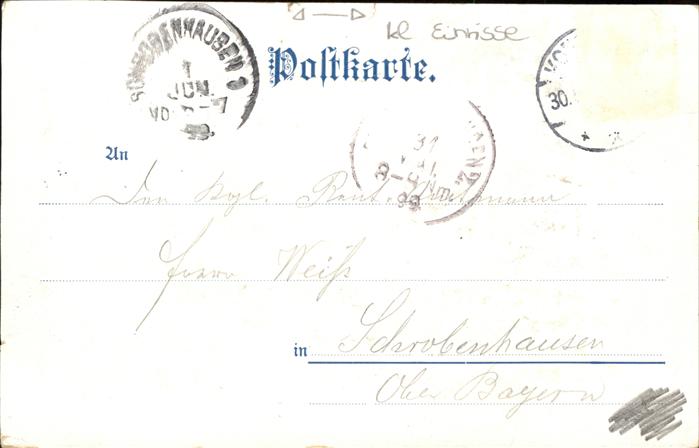 kl Einrisse
SCHROBENHAUSEN
1
JUN.
Postkarte.
30.
31
An
Den Kgl. Rent
Herrn Weiß
in Schrobenhausen
Ober Bayern